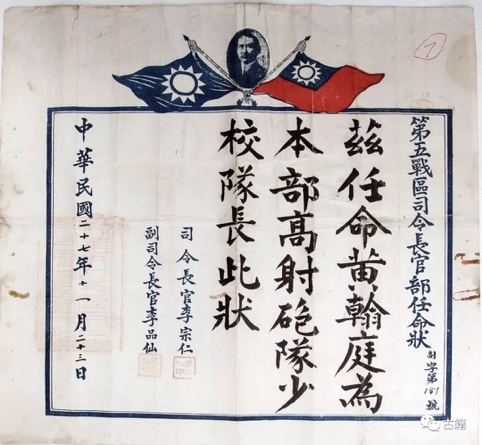 第五戰區司令長官部任命狀
字第187號
茲任命黄翰庭為
本部高射砲隊少
校隊長此狀
司令長官李宗仁
副司令長官李品仙
中華民國二十七年十一月二十三日
7
古籍